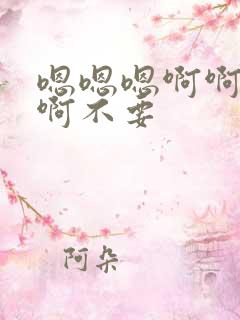 嗯嗯嗯啊啊
啊不要
阿朵